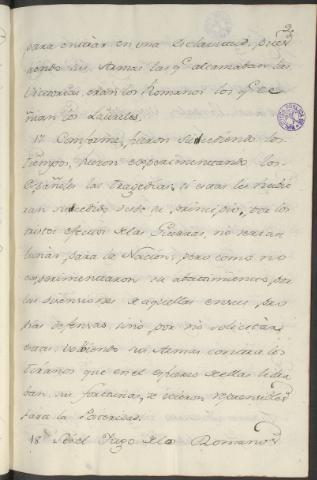 para entrar en una esclavitud, pues
siendo sus Armas las q.e alcanzaban las
Victorias, eran los Romanos los q.e ce-
ñian los Laureles.
17. Conforme fueron sucediendo los
tiempos, fueron experimentando los
Españoles las tragedias, si estas les hubie
ran sucedido desde su principio, por los
justos efectos de las Guerras, no serian
para la Nacion, pero como no
experimentaron su abatimiento, por
las disensiones de aquellas en sus pro
pias defensas, sino, por no solicitar
estas, volviendo sus Armas contra los
tiranos que en el esfuerzo de ellas libra
ban sus fortunas, se vieron
para la Posteridad.
18. En el Yugo de los Romanos